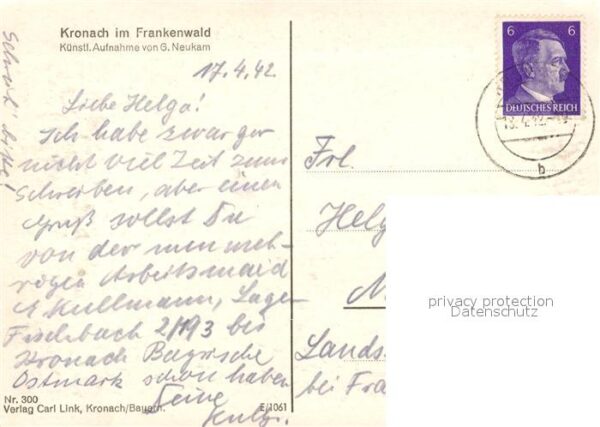 Kronach im Frankenwald
Künstl. Aufnahme von G. Neukam
17.4.42.
Liebe Helga!
Ich habe zwar gar
nicht viel Zeit zum
Schreiben, aber einen
Gruß sollst Du
von der nunmeh-
rigen Arbeitsmaid
Kullmann, Lager
Fischbach 2/193 bei
Kronach Bayrische
Ostmark schon haben
Deine
Schreib' bitte!
Nr. 300
Verlag Carl Link, Kronach/Bayern.
E/1061
6 6
DEUTSCHES REICH
b
Frl.
Helg
Lands
bei Fra
privacy protection
Datenschutz